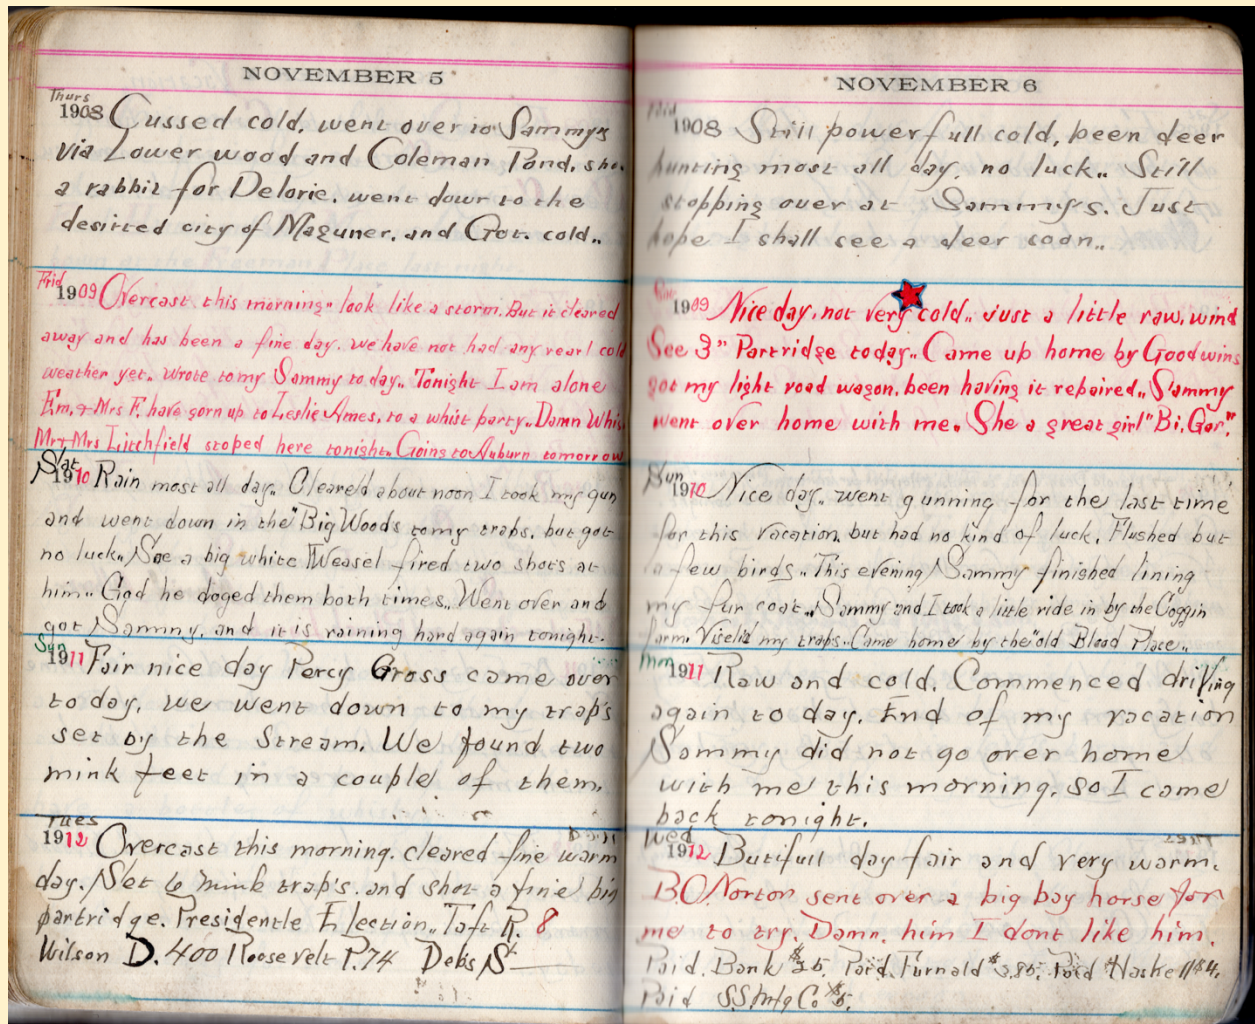 NOVEMBER 5
Thurs
1908 Cussed cold, went over to Sammys
via Lower wood and Coleman Pond. sho
a rabbit for Delorie. went down to the
desirted city of Maguner. and Got. cold..
Frid
1909 Overcast this morning.. look like a storm. But it cleared
away and has been a fine day. we have not had any rearl cold
weather yet.. wrote to my Sammy to day.. Tonight I am alone
Em. & Mrs F. have gorn up to Leslie Ames, to a whist party.. Damn Whis
Mr & Mrs Litchfield stoped here tonight.. Goins to Auburn tomorrow
Sat
1910 Rain most all day.. Cleared about noon I took my gun
and went down in the "Big Woods to my traps, but got
no luck.. See a big white Weasel fired two shots at
him.. God he doged them both times.. Went over and
got Sammy, and it is raining hard again tonight.
Sun
1911 Fair nice day Percy Gross came over
to day. we went down to my trap's
set by the Stream. We found two
mink feet in a couple of them.
Tues
1912 Overcast this morning. cleared fine warm
day. Set 6 Mink trap's. and shot a fine big
partridge. Presidentle Election.. Taft R. 8
Wilson D. 400 Roosevelt P. 74 Debs S
NOVEMBER 6
Frid
1908 Still powerfull cold, been deer
hunting most all day, no luck.. Still
stopping over at Sammys. Just
hope I shall see a deer soon..
1909 Nice day, not very cold.. Just a little raw, wind
See 3" Partridge today.. Came up home by Goodwins
got my light road wagon, been having it repaired.. Sammy
went over home with me. She a great girl "Bi, Gor."
Sun
1910 Nice day.. went gunning for the last time
for this vacation, but had no kind of luck. Flushed but
a few birds.. This evening Sammy finished lining
my fur coat.. Sammy and I took a little ride in by the Coggin
farm. Viseliz my traps.. Came home by the "old Blood Place..
Mon
1911 Raw and cold. Commenced driving
again to day. End of my vacation
Sammy did not go over home
with me this morning. So I came
back tonight.
Wed
1912 Butifull day fair and very warm.
B.O. Norton sent over a big bay horse for
me to try. Damn him I dont like him.
Paid. Bank $25. Paid. Furnald $3.85. Paid Haskell $4.
Paid S.S. Mfg Co $5.